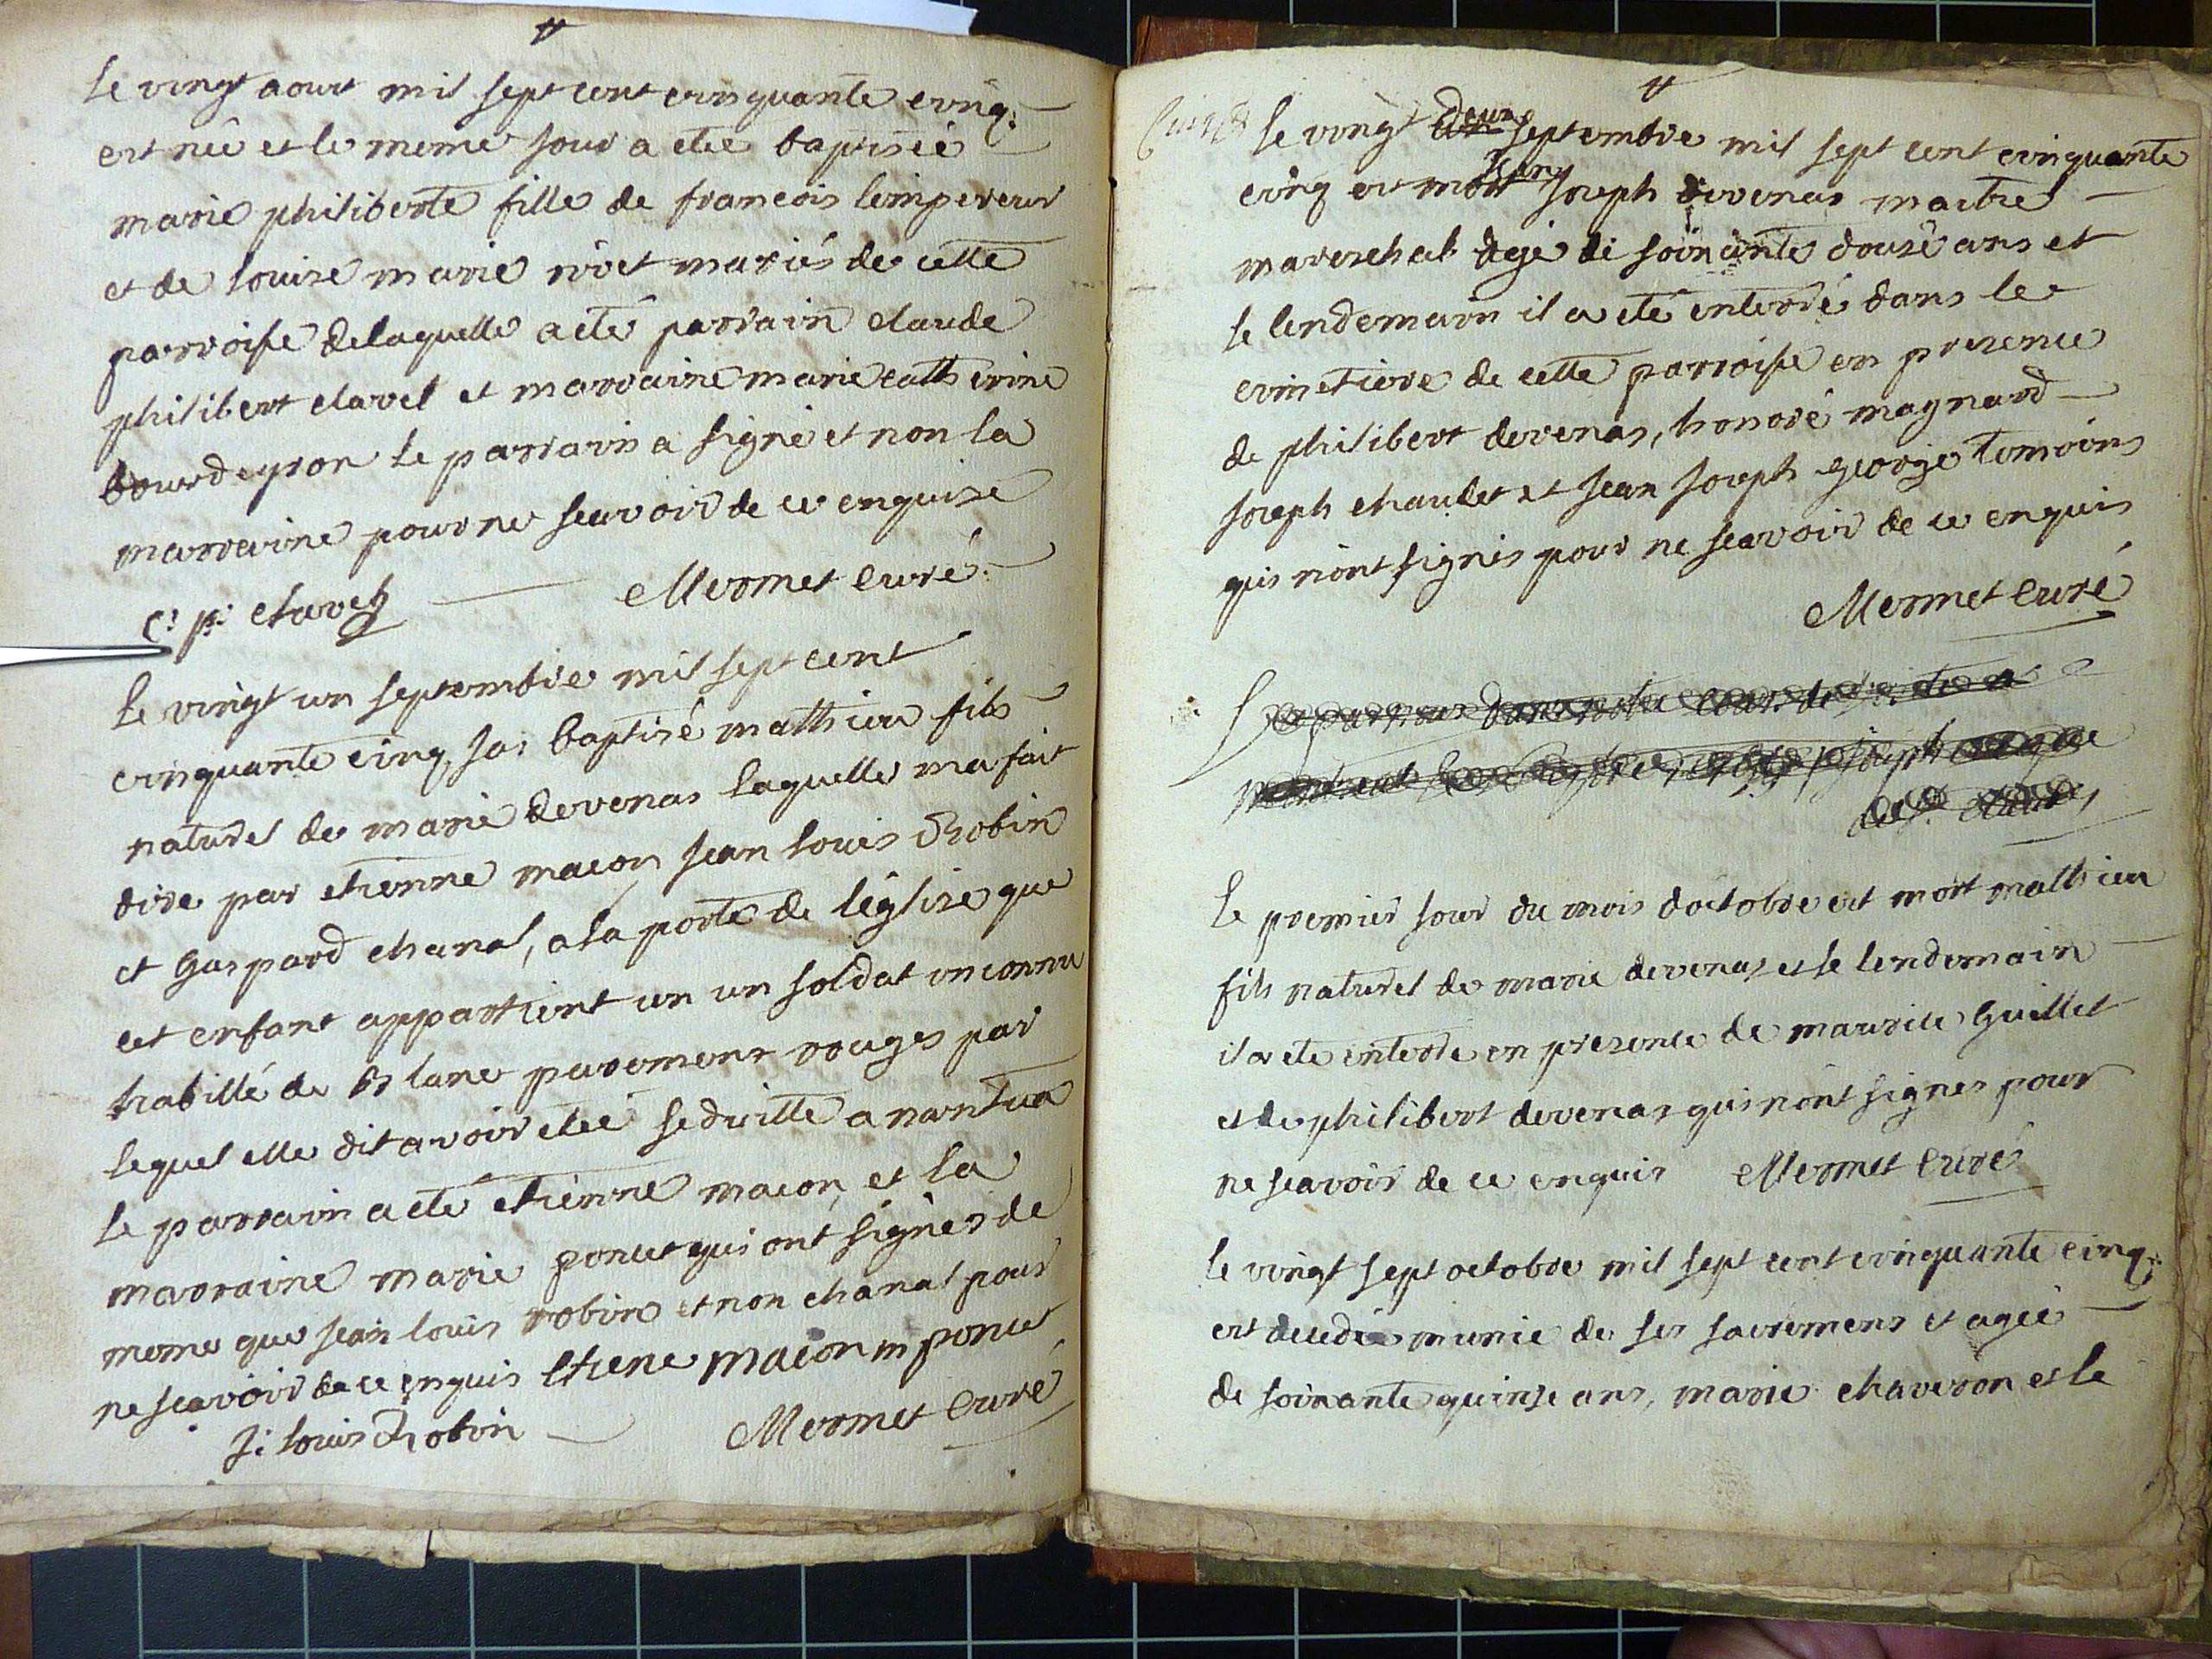 le vingt aout mil sept cent cinquante cinq
est née et le meme jour a etee baptisée
marie philiberte fille de francois lempereur
et de louise marie rivet mariés de cette
parroisse delaquelle a eté parrain claude
philibert clavel et marraine marie catherine
bourdeyron le parrain a signé et non la
marraine pour ne scavoir de ce enquise
C: p: clavel Mermet curé
le vingt un septembre mil sept cent
cinquante cinq jai baptisé matthieu fils
naturel de marie devenas laquelle ma fait
dire par etienne macon jean louis Robin
et gaspard chanal, a la porte de léglise que
cet enfant appartient un un soldat inconnu
habillé de blanc paremens rouges par
lequel elle dit avoir etée seduitte a nantua
le parrain a eté etienne macon et la
marraine marie poncet qui ont signés de
meme que jean louis robin et non chanal pour
ne scavoir de ce enquis Etiene macon m ponce
J: louis Robin Mermet curé
le vingt deux septembre mil sept cent cinquante
cinq est mort jean joseph devenas maitre
mareschal agé de soixante douse ans et
le lendemain il a eté enterré dans le
cimetiere de cette parroisse en presence
de philibert devenas, honoré magnard
joseph chaudet et jean joseph george temoins
qui nont signés pour ne scavoir de ce enquis
Mermet curé
joseph
le premier jour du mois doctobre est mort matthieu
fils naturel de marie devenas et le lendemain
il a eté enterré en presence de maurice guillet
et de philibert devenas qui nont signes pour
ne scavoir de ce enquis Mermet curé
le vingt sept octobre mil sept cent cinquante cinq
est decedée munie de ses sacremens et agée
de soixante quinse ans, marie chaveron et le